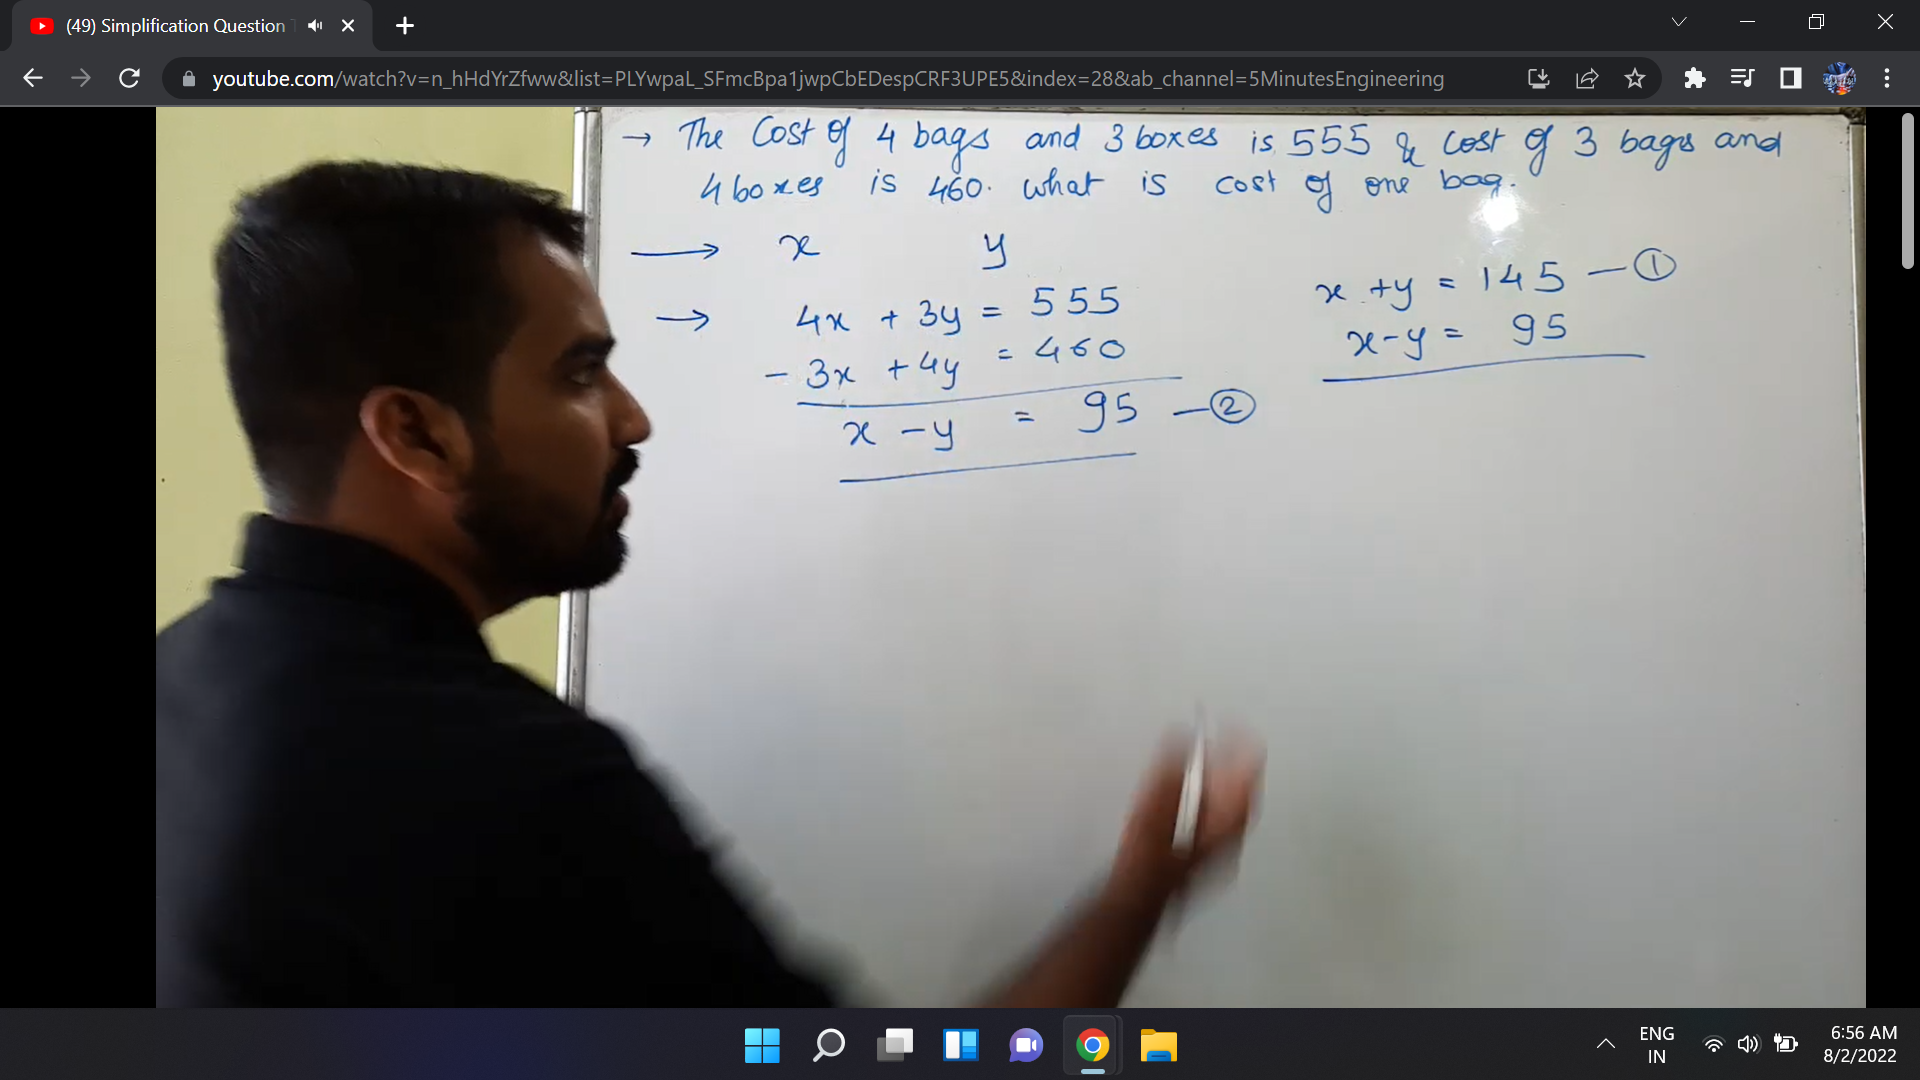 (49) Simplification Question
youtube.com/watch?v=n_hHdYrZfww&list=PLYwpaL_SFmcBpa1jwpCbEDespCRF3UPE5&index=28&ab_channel=5MinutesEngineering
→ The Cost of 4 bags and 3 boxes is 555 & cost of 3 bags and
4 boxes is 460. what is cost of one bag.
→ x y
→ 4x + 3y = 555
- 3x + 4y = 460
x - y = 95 — ②
x + y = 145 — ①
x - y = 95
ENG
IN
6:56 AM
8/2/2022